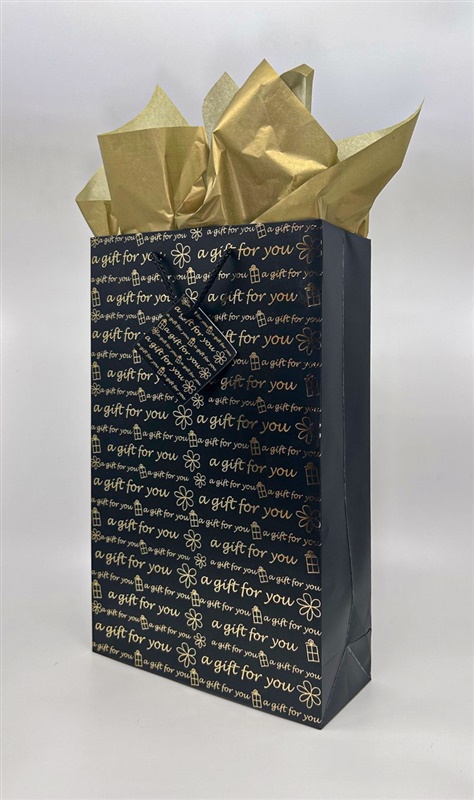 a gift for you a gift for you
a gift for you a gift for you
a gift for you a gift for you
a gift for you a gift for you
a gift for you a gift for you
a gift for you
a gift for you
a gift for you
a gift for you
a gift for you a gift for you
a gift for you a gift for you
a gift for you a gift for you
a gift for you a gift for you
a gift for you a gift for you
a gift for you a gift for you
a gift for you a gift for you
a gift for you a gift for you
a gift for you a gift for you
a gift for you a gift for you
a gift for you a gift for you
a gift for you a gift for you
a gift for you a gift for you
a gift for you a gift for you
a gift for you a gift for you
a gift for you a gift for you